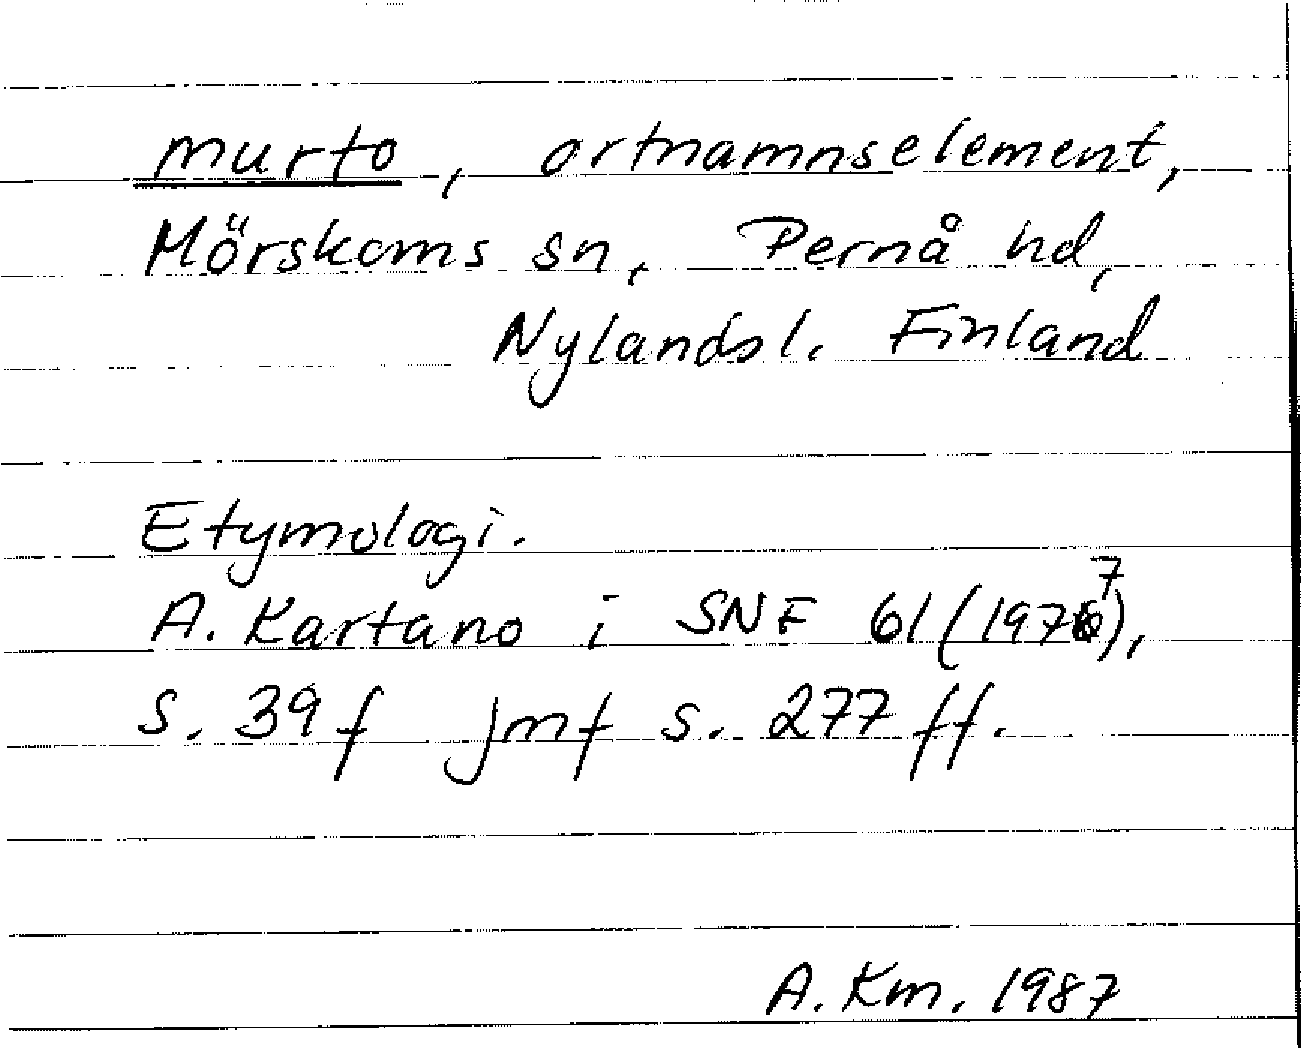 murto, ortnamnselement,
Mörskoms sn, Pernå hd,
Nylandsl. Finland
Etymologi.
A. Kartano i SNF 61 (1977),
s. 39 f jmf s. 277 ff.
A. Km. 1987